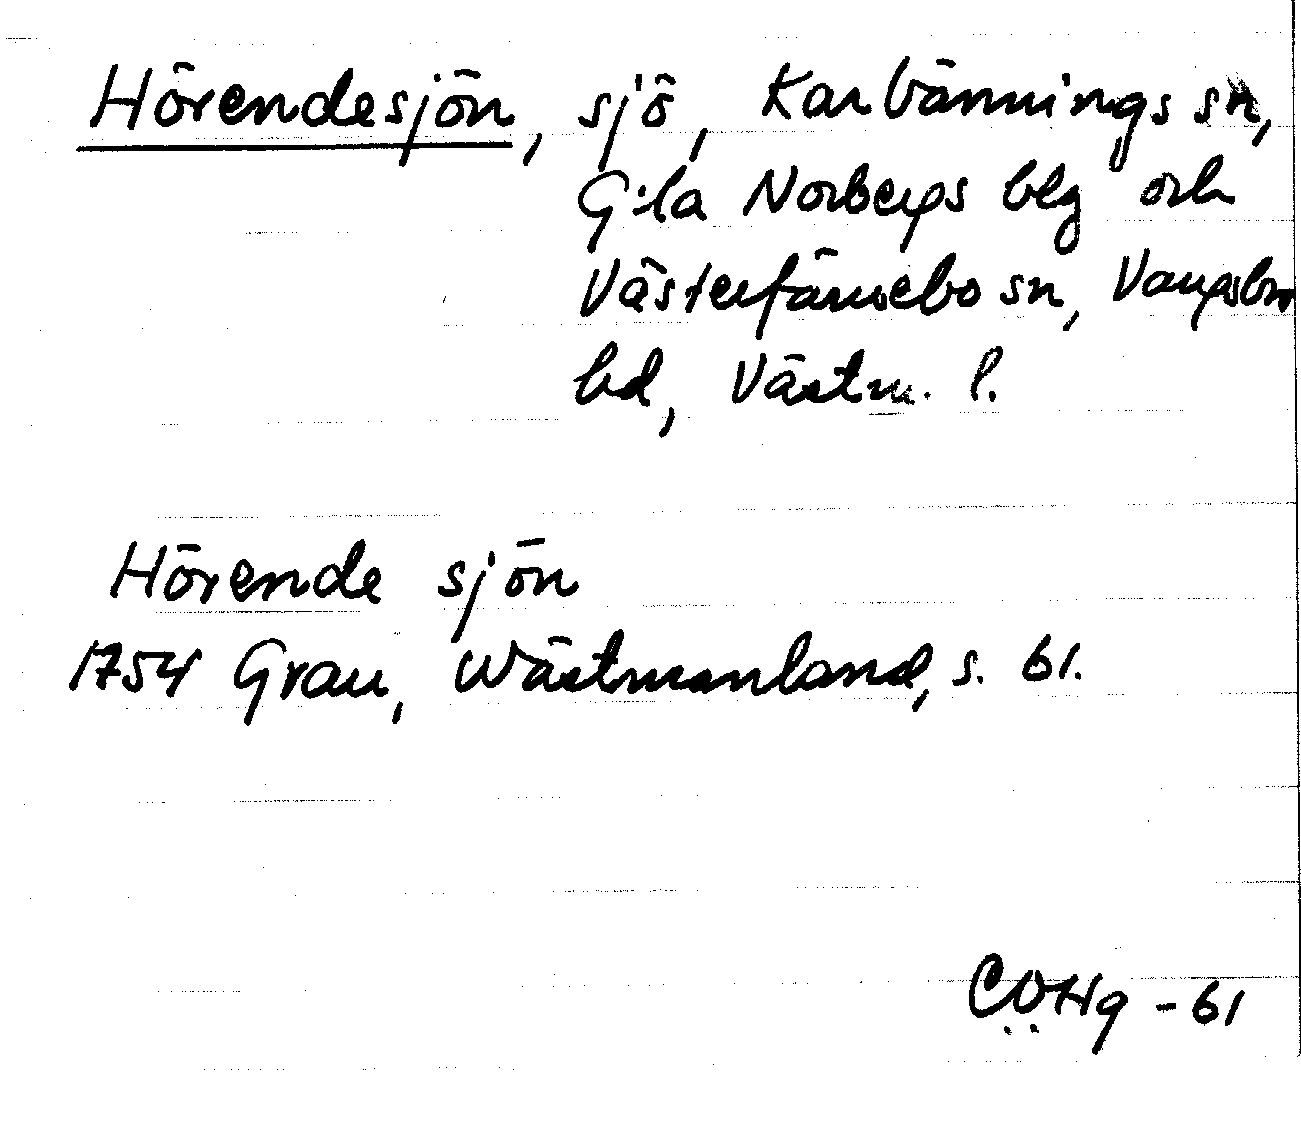 Hörendesjön, sjö, Karbännings sn,
G:la Norbergs blg och
Västerfärnebo sn, Vangsbro
hd, Västm. l.
Hörende sjön
1754 Grau, Wästmanland, s. 61.
COHg - 61